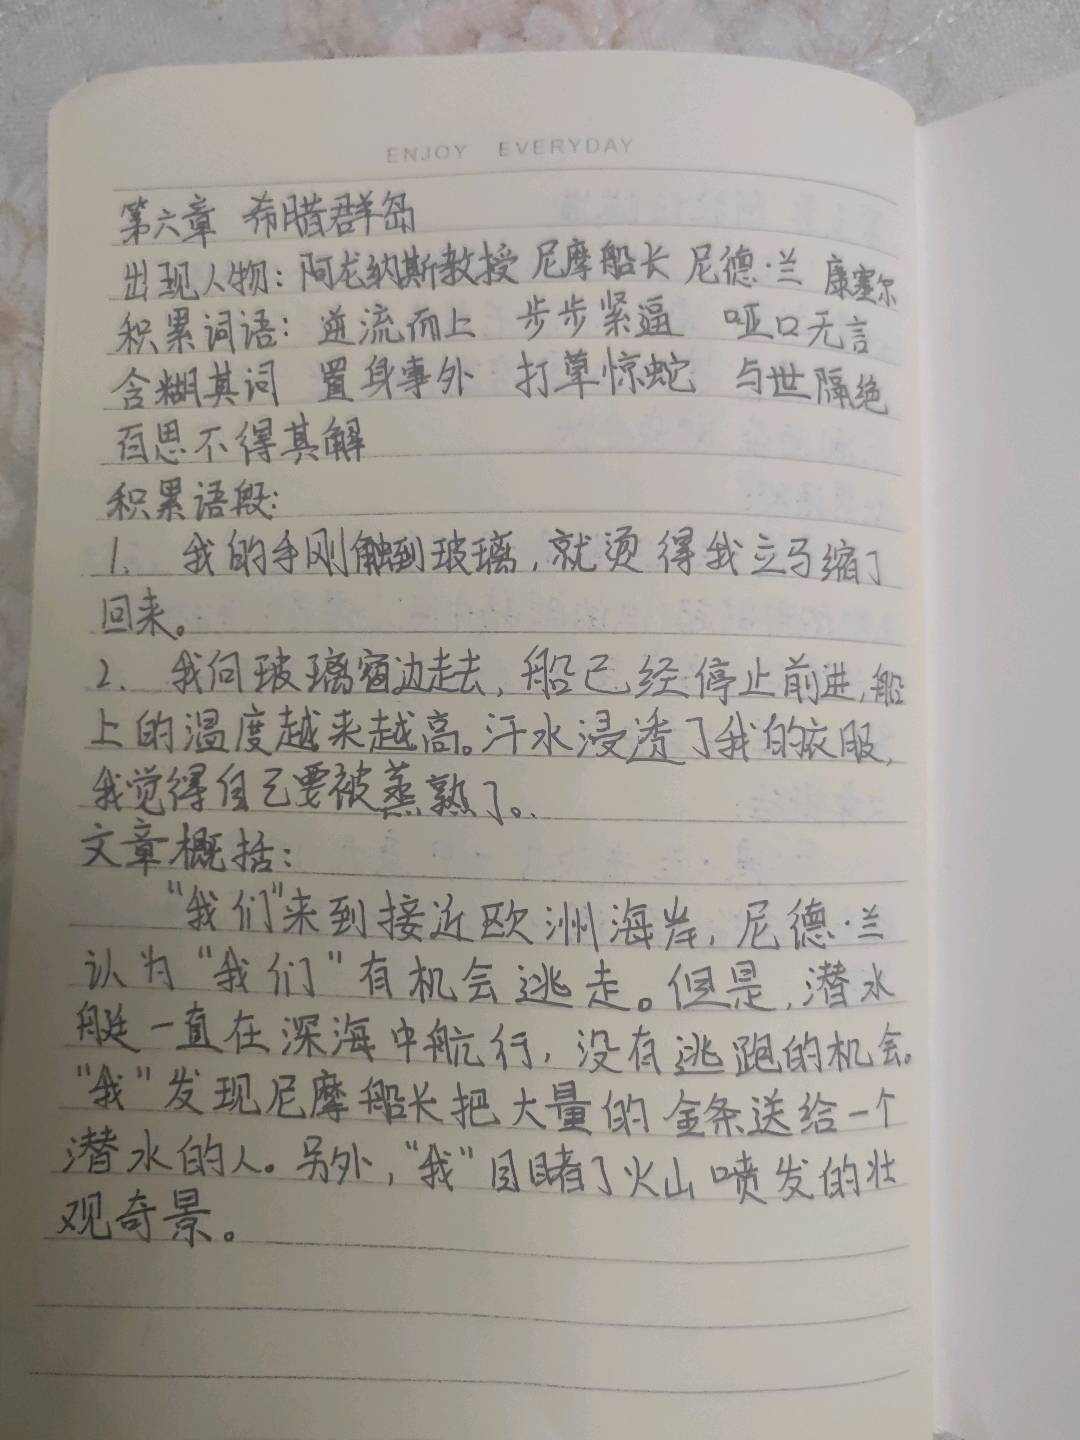 ENJOY EVERYDAY
第六章 希腊群岛
出现人物：阿龙纳斯教授 尼摩船长 尼德·兰 康塞尔
积累词语：逆流而上 步步紧逼 哑口无言
含糊其词 置身事外 打草惊蛇 与世隔绝
百思不得其解
积累语段：
1. 我的手刚触到玻璃，就烫得我立马缩了
回来。
2. 我向玻璃窗边走去，船已经停止前进，船
上的温度越来越高。汗水浸透了我的衣服，
我觉得自己要被蒸熟了。
文章概括：
“我们”来到接近欧洲海岸，尼德·兰
认为“我们”有机会逃走。但是，潜水
艇一直在深海中航行，没有逃跑的机会。
“我”发现尼摩船长把大量的金条送给一个
潜水的人。另外，“我”目睹了火山喷发的壮
观奇景。